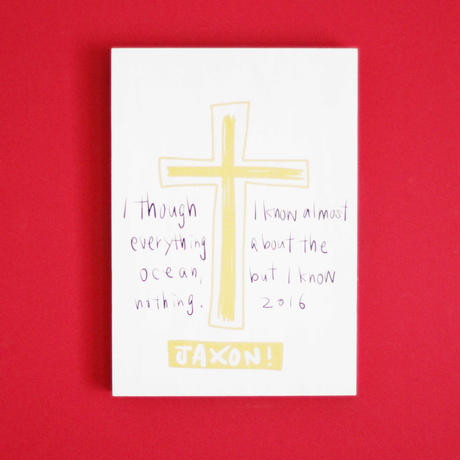 I though I know almost
everything about the
ocean, but I know
nothing. 2016
JAXON!